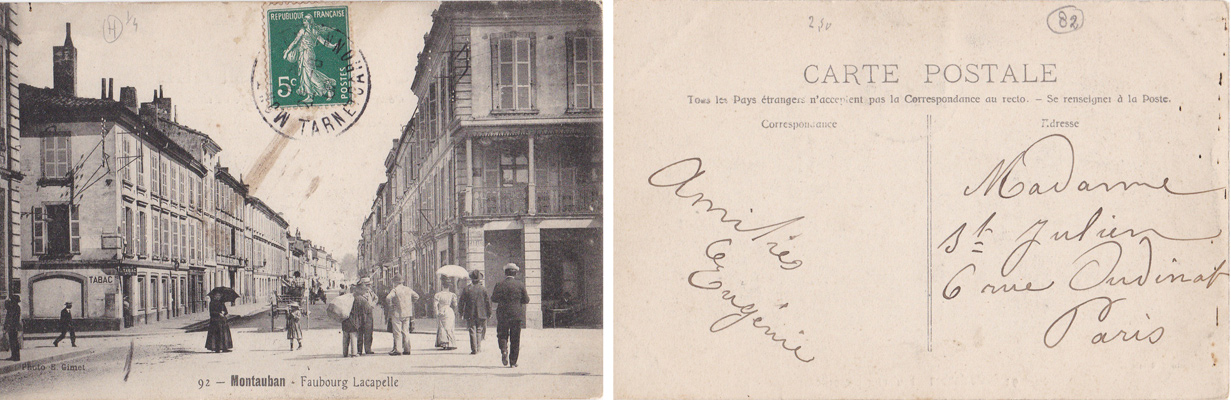 (H) 1/4
REPUBLIQUE FRANÇAISE
5c
POSTES
TARN
TABAC
Photo E. Gimet
92 — Montauban - Faubourg Lacapelle
82
CARTE POSTALE
Tous les Pays étrangers n'acceptent pas la Correspondance au recto. – Se renseigner à la Poste.
Correspondance
Adresse
Amitiés
Eugénie
Madame
St Julien
6 rue Oudinot
Paris